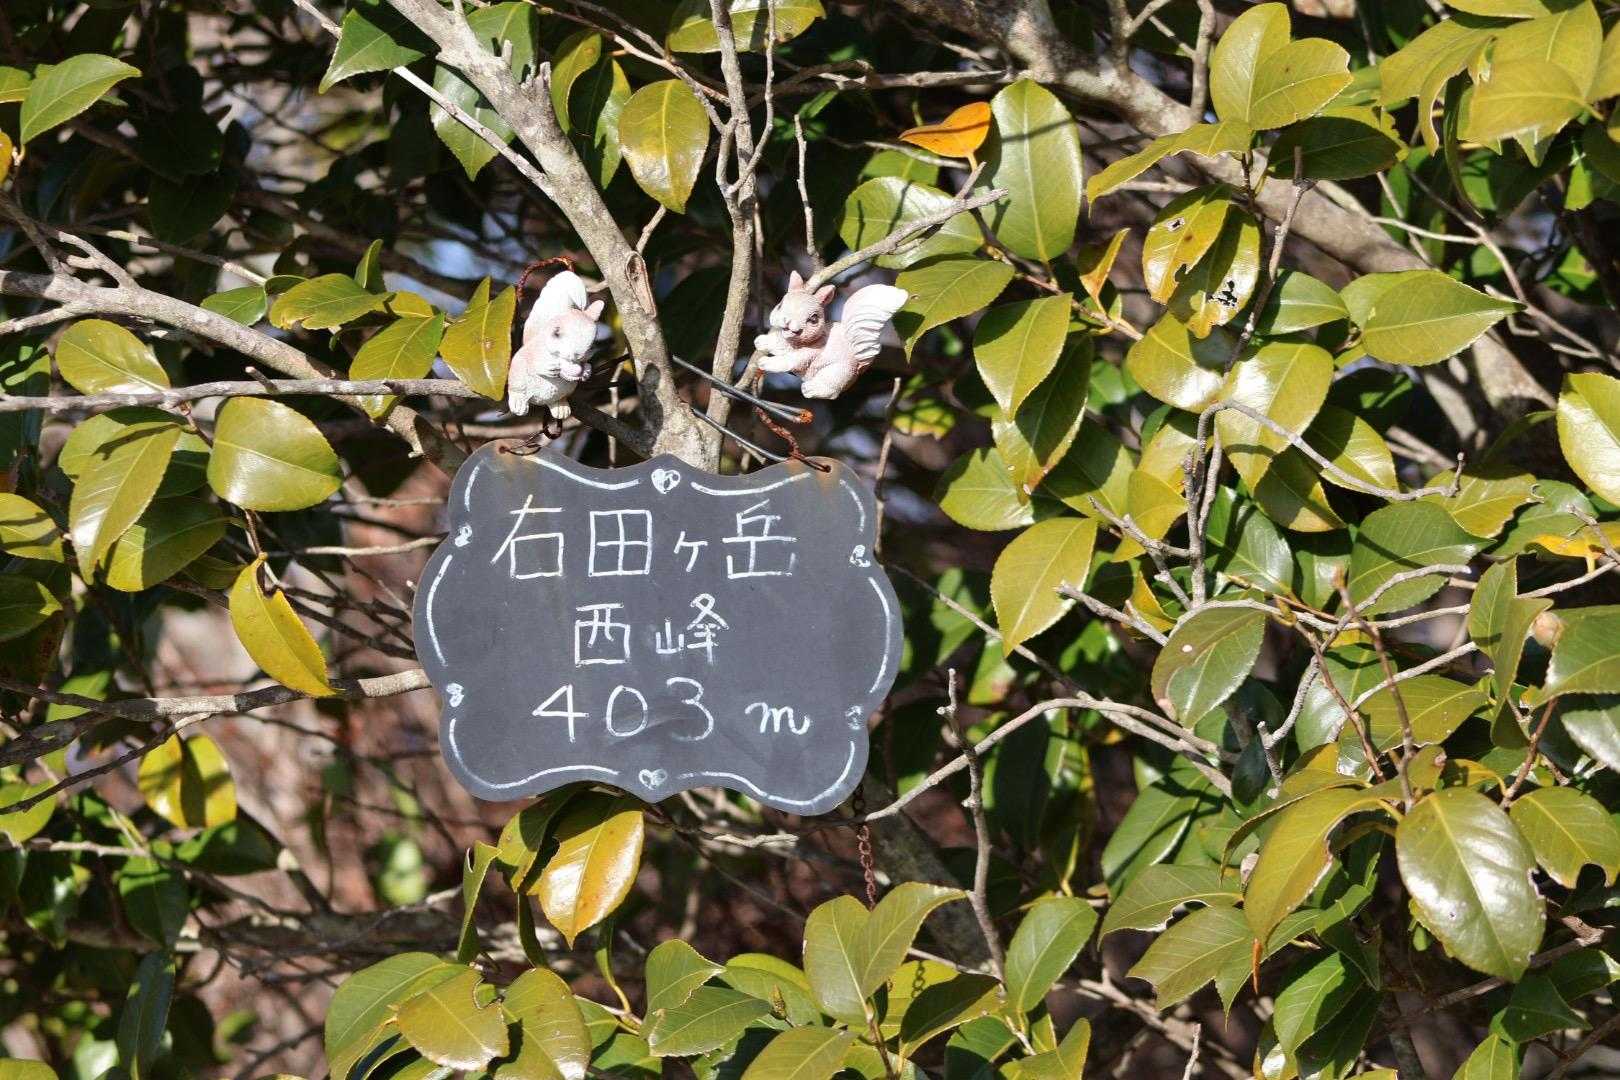 右田ヶ岳
西峰
403 m